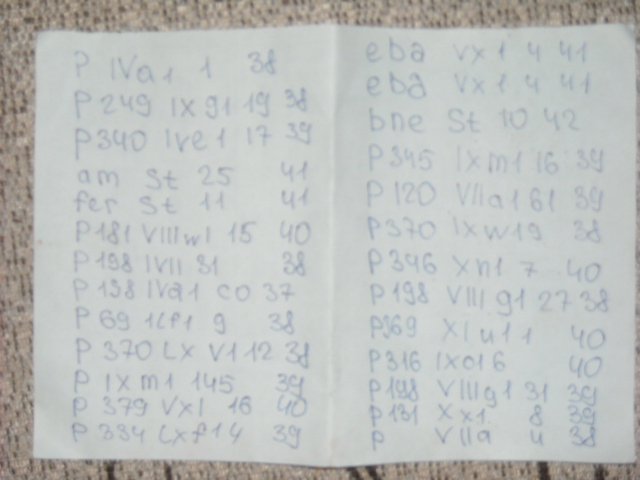 P IVa1 1 38
P249 IX g1 19 38
P340 IVe1 17 39
am St 25 41
fer St 11 41
P181 VIIIw1 15 40
P198 IVII 31 38
P138 IVa1 CO 37
P69 g 38
P370 Lx V1 12 38
P IX m1 145 39
P379 VX1 16 40
P334 Lxf1 4 39
eba VX1 4 41
eba VX1 4 41
bne St 10 42
P345 IXm1 16 39
P120 VIIa1 61 39
P370 IXw19 38
P346 Xn1 7 40
P198 VIII g1 27 38
P369 XI u11 40
P316 IXo1 6 40
P198 VIIIg1 31 39
P131 Xx1 8 39
P VIIa 4